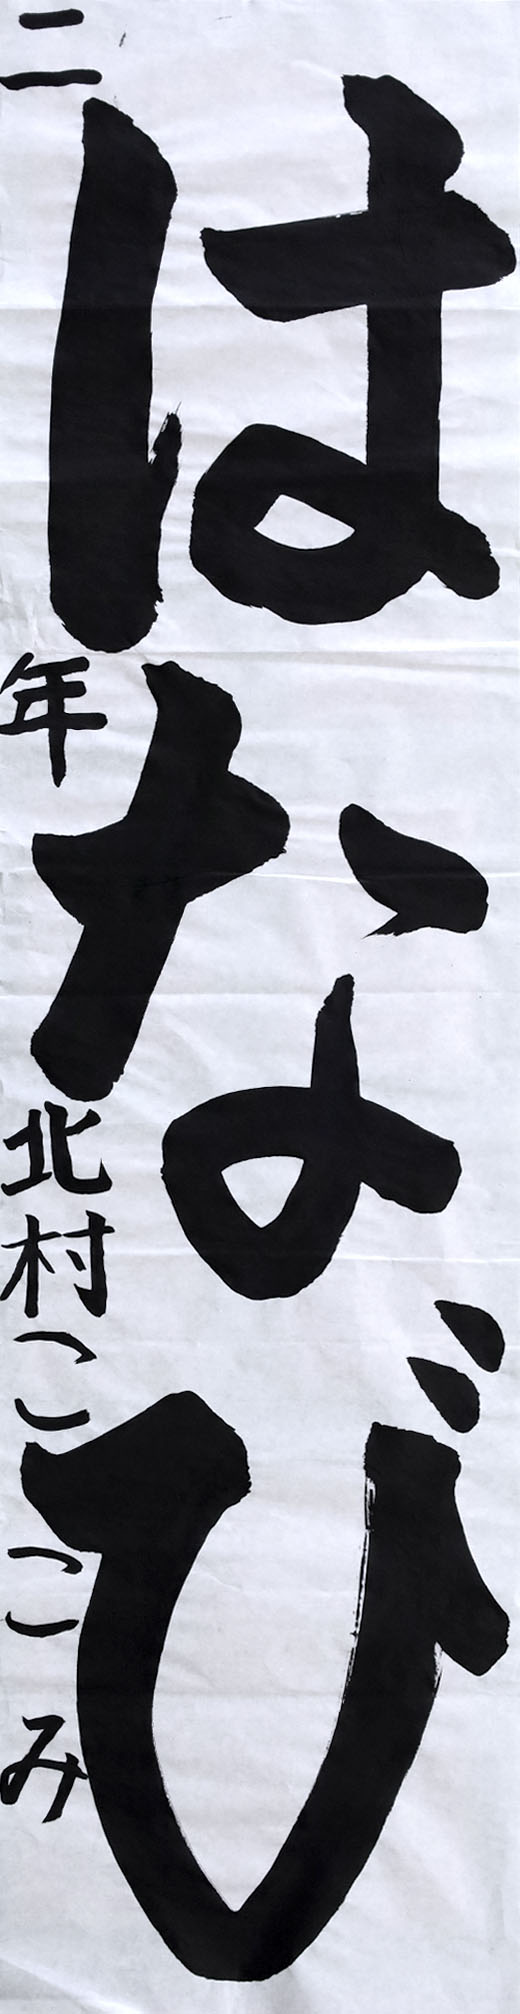 はなび
二年 北村こころみ